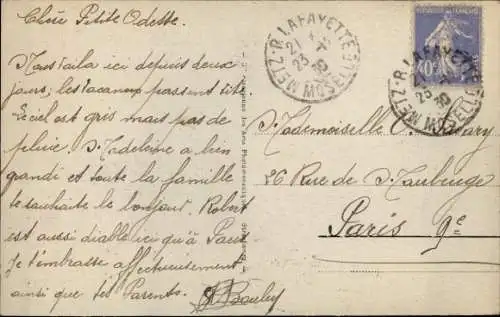 Chère Petite Odette.
Nous voila ici depuis deux
jours; les vacances passent vite
Le ciel est gris mais pas de
pluie. Madeleine a bien
grandi et toute la famille
te souhaite le bonjour. Robert
est aussi diable ici qu'à Paris
Je t'embrasse affectueusement
ainsi que tes Parents.
METZ-R. LAFAYETTE
MOSELLE
METZ-R. LAFAYETTE
MOSELLE
40c
Mademoiselle O.
26 Rue de Maubeuge
Paris 9e